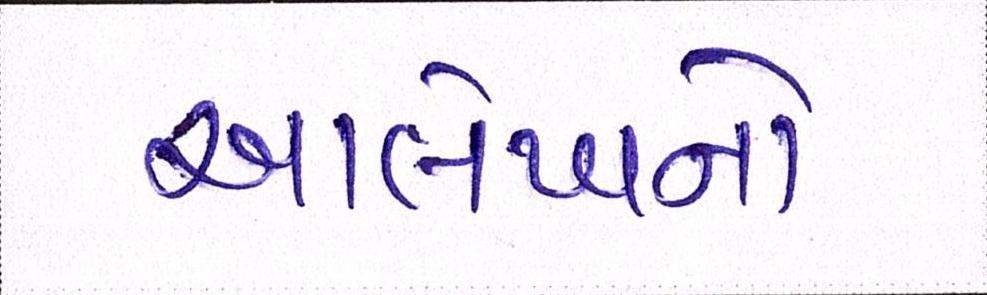 આલેખનો